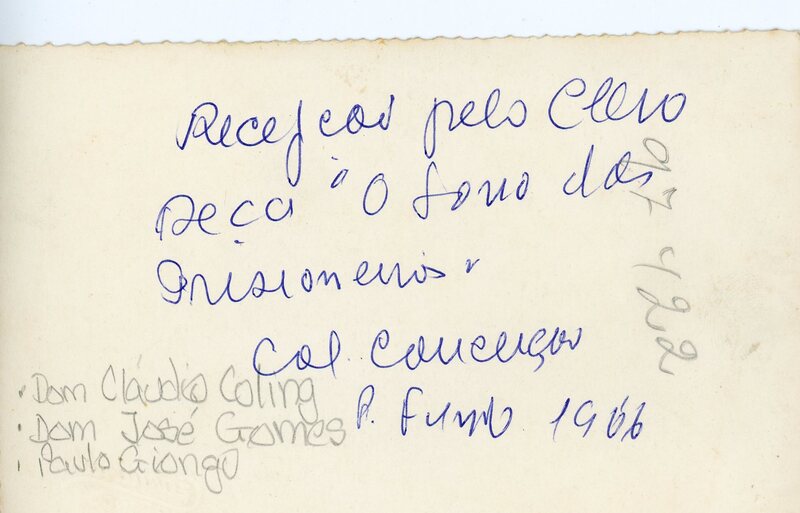 Recepção pelo Clero
peça "O Sono dos
Prisioneiros"
Col Conceição
P. Fundo 1966
· Dom Cláudio Coling
· Dom José Gomes
· Paulo Giongo
97 422